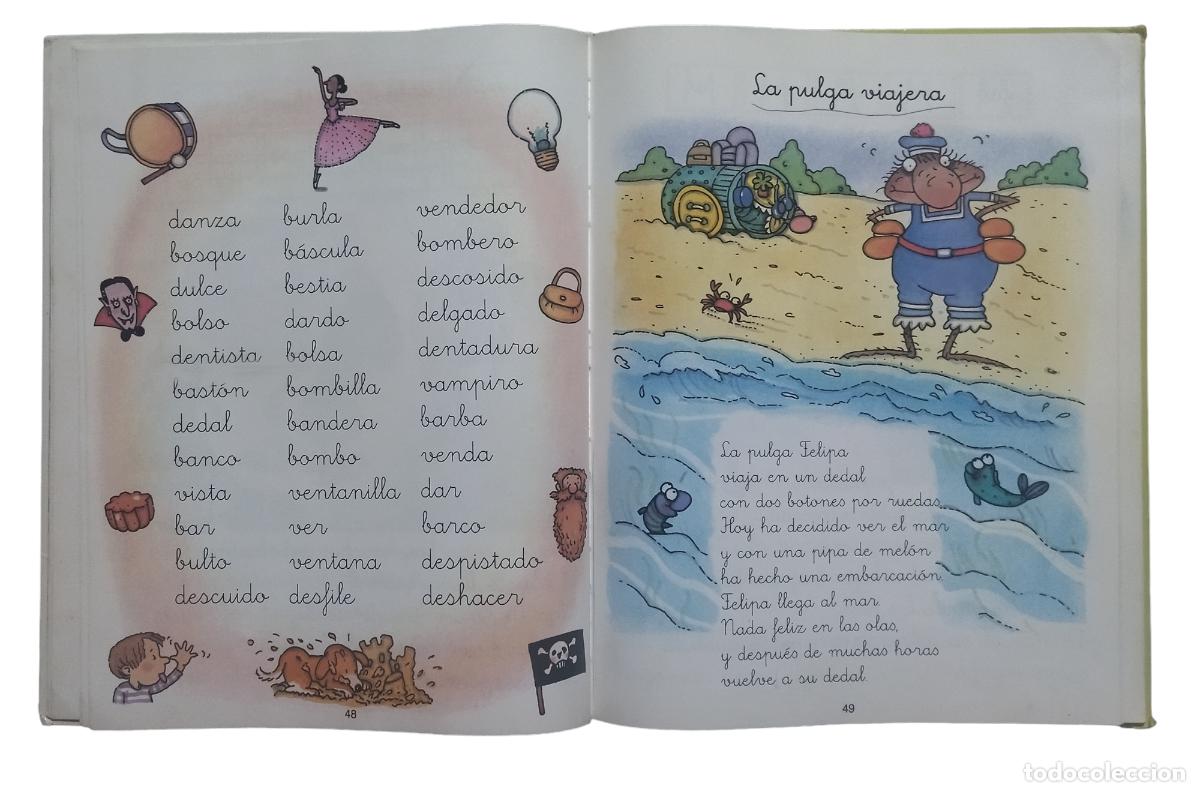 danza burla vendedor
bosque báscula bombero
dulce bestia descosido
bolso dardo delgado
dentista bolsa dentadura
bastón bombilla vampiro
dedal bandera barba
banco bombo venda
vista ventanilla dar
bar ver barco
bulto ventana despistado
descuido desfile deshacer
48
La pulga viajera
La pulga Felipa
viaja en un dedal
con dos botones por ruedas.
Hoy ha decidido ver el mar
y con una pipa de melón
ha hecho una embarcación.
Felipa llega al mar.
Nada feliz en las olas,
y después de muchas horas
vuelve a su dedal.
49
todocoleccion